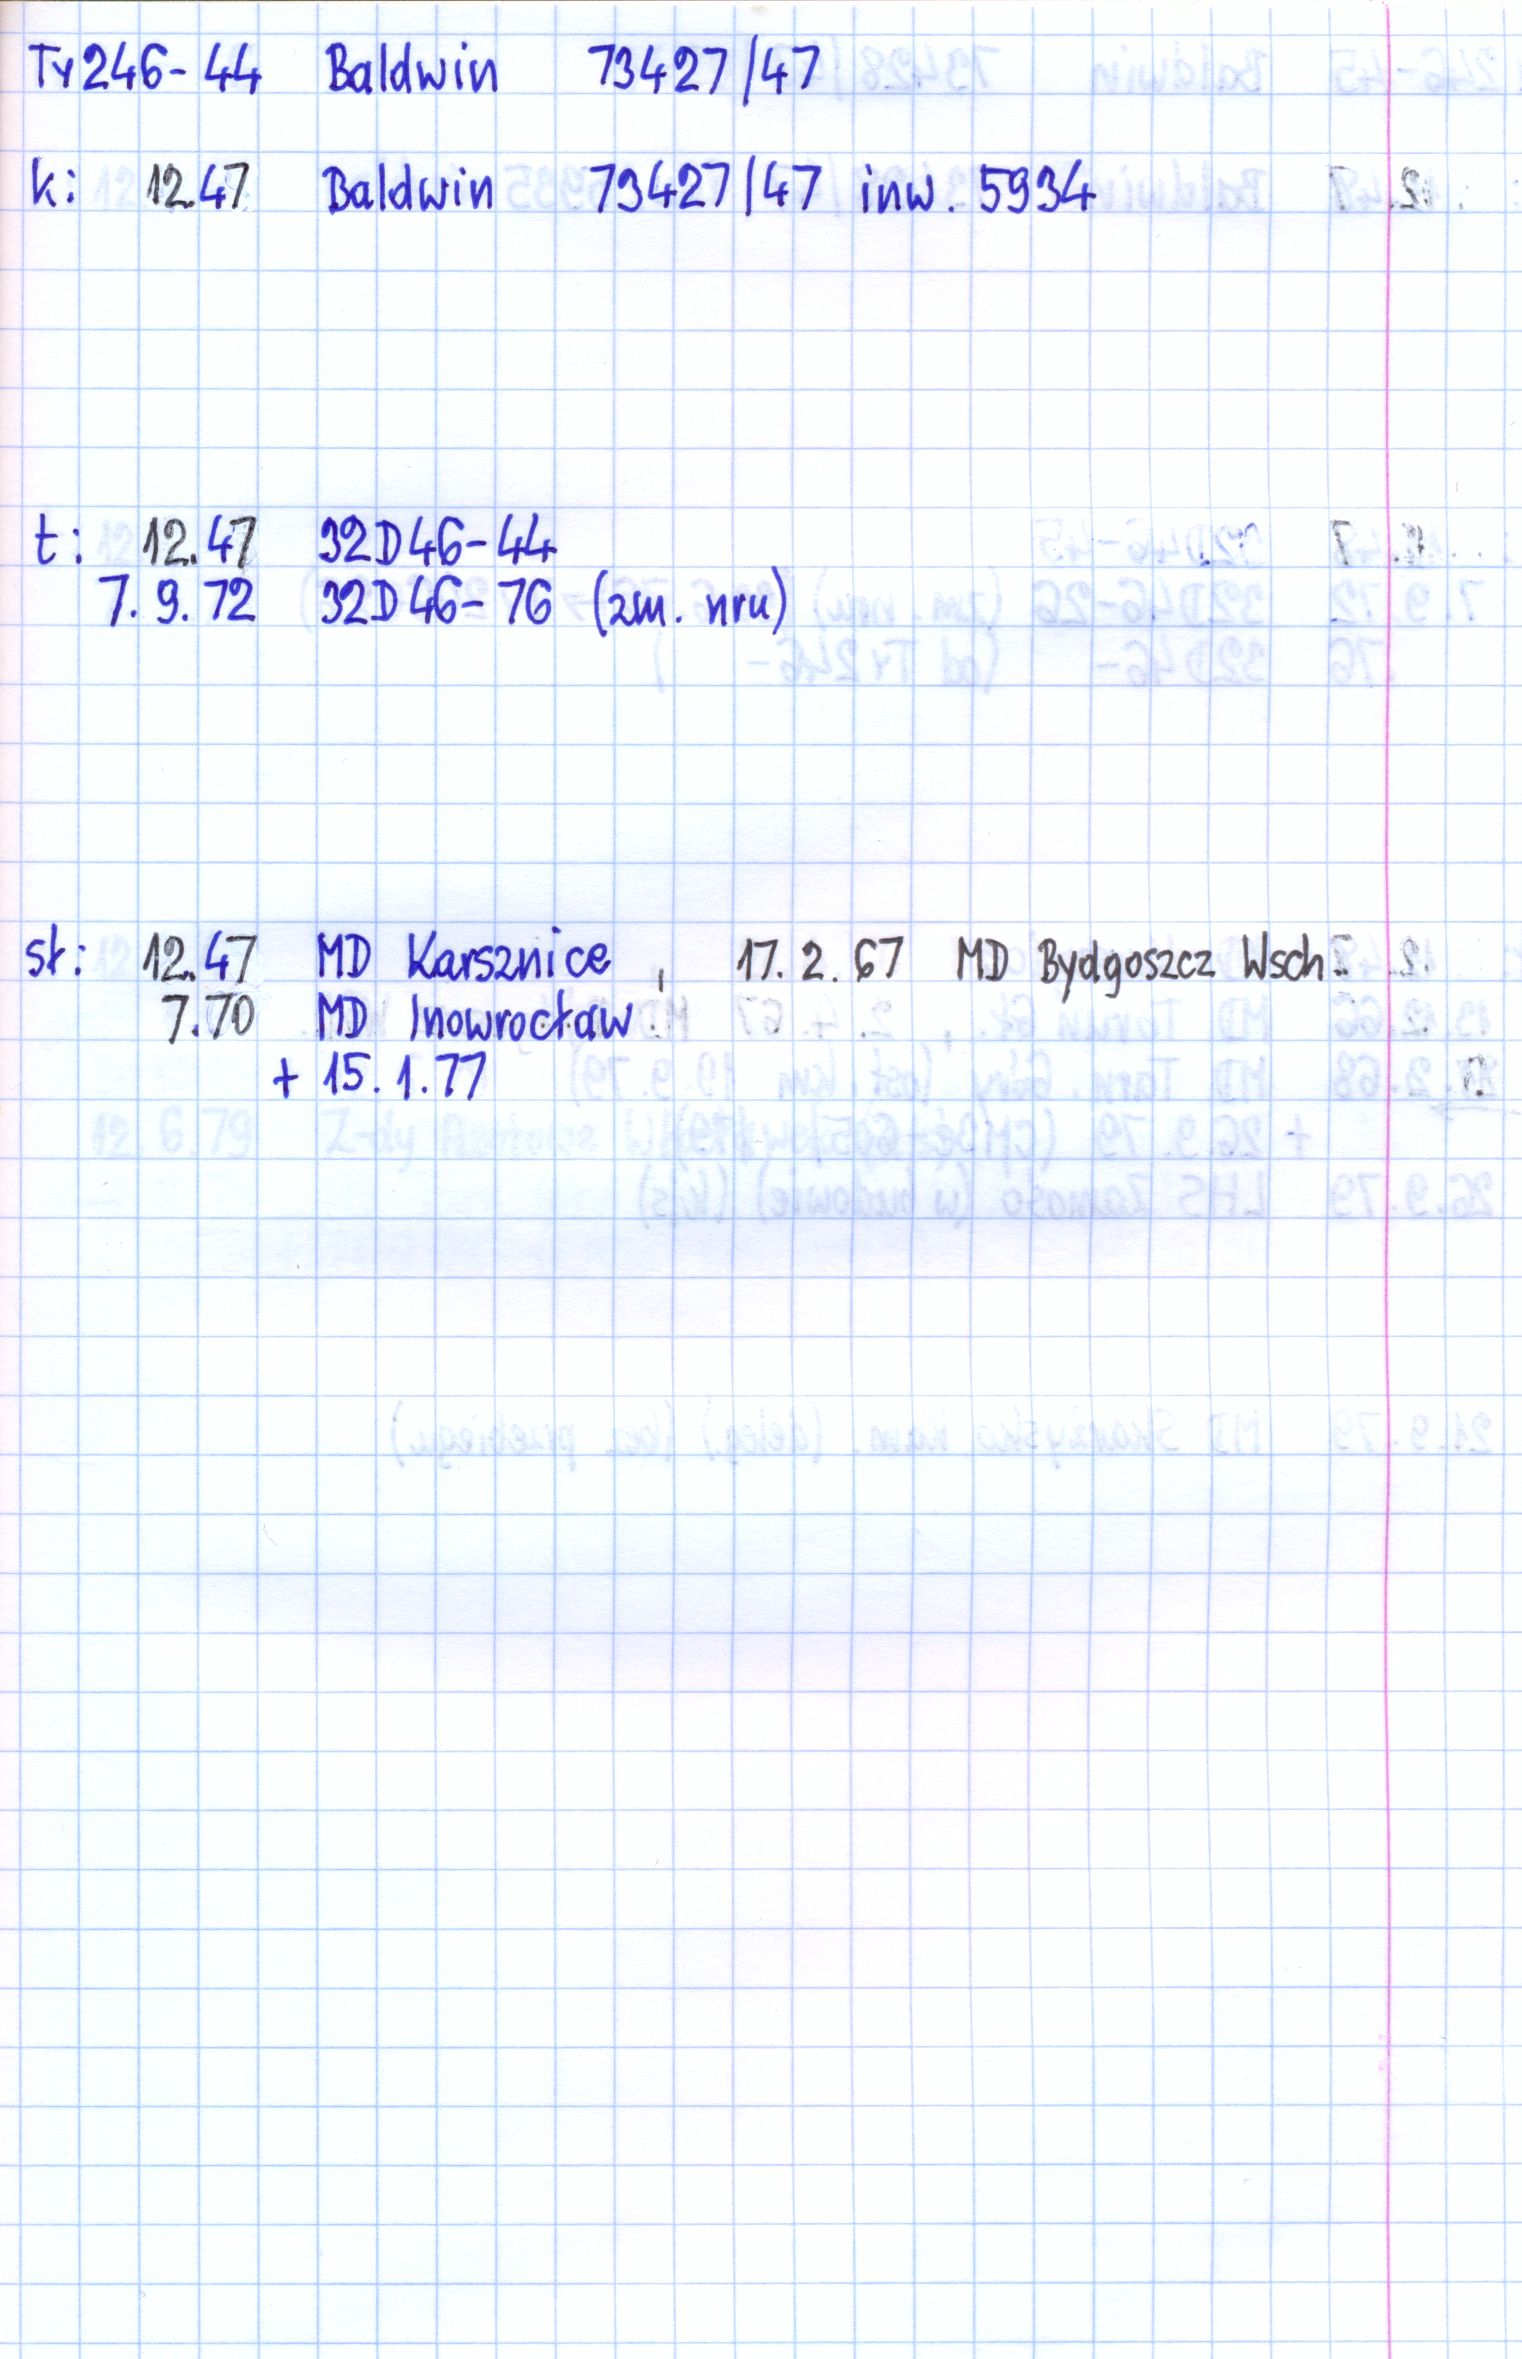 Ty246-44 Baldwin 73427/47
k: 12.47 Baldwin 73427/47 inw. 5934
t: 12.47 32D46-44
7.9.72 32D46-76 (zm. nru)
st: 12.47 MD Karsznice, 17.2.67 MD Bydgoszcz Wsch.
7.70 MD Inowrocław
+ 15.1.77